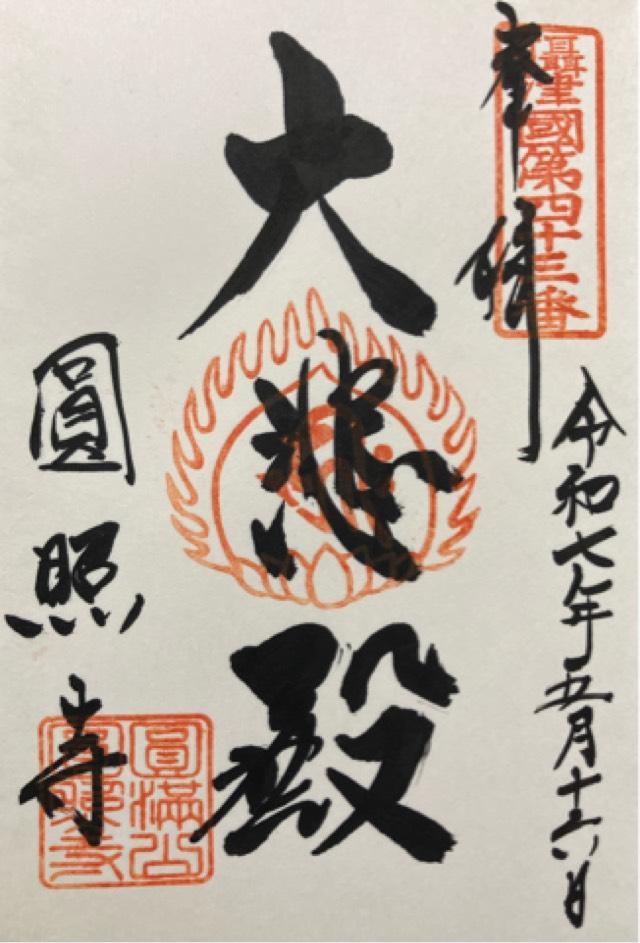 奉修
攝津國第四十三番
令和七年五月十六日
大悲殿
圓照寺
圓滿山
圓照寺